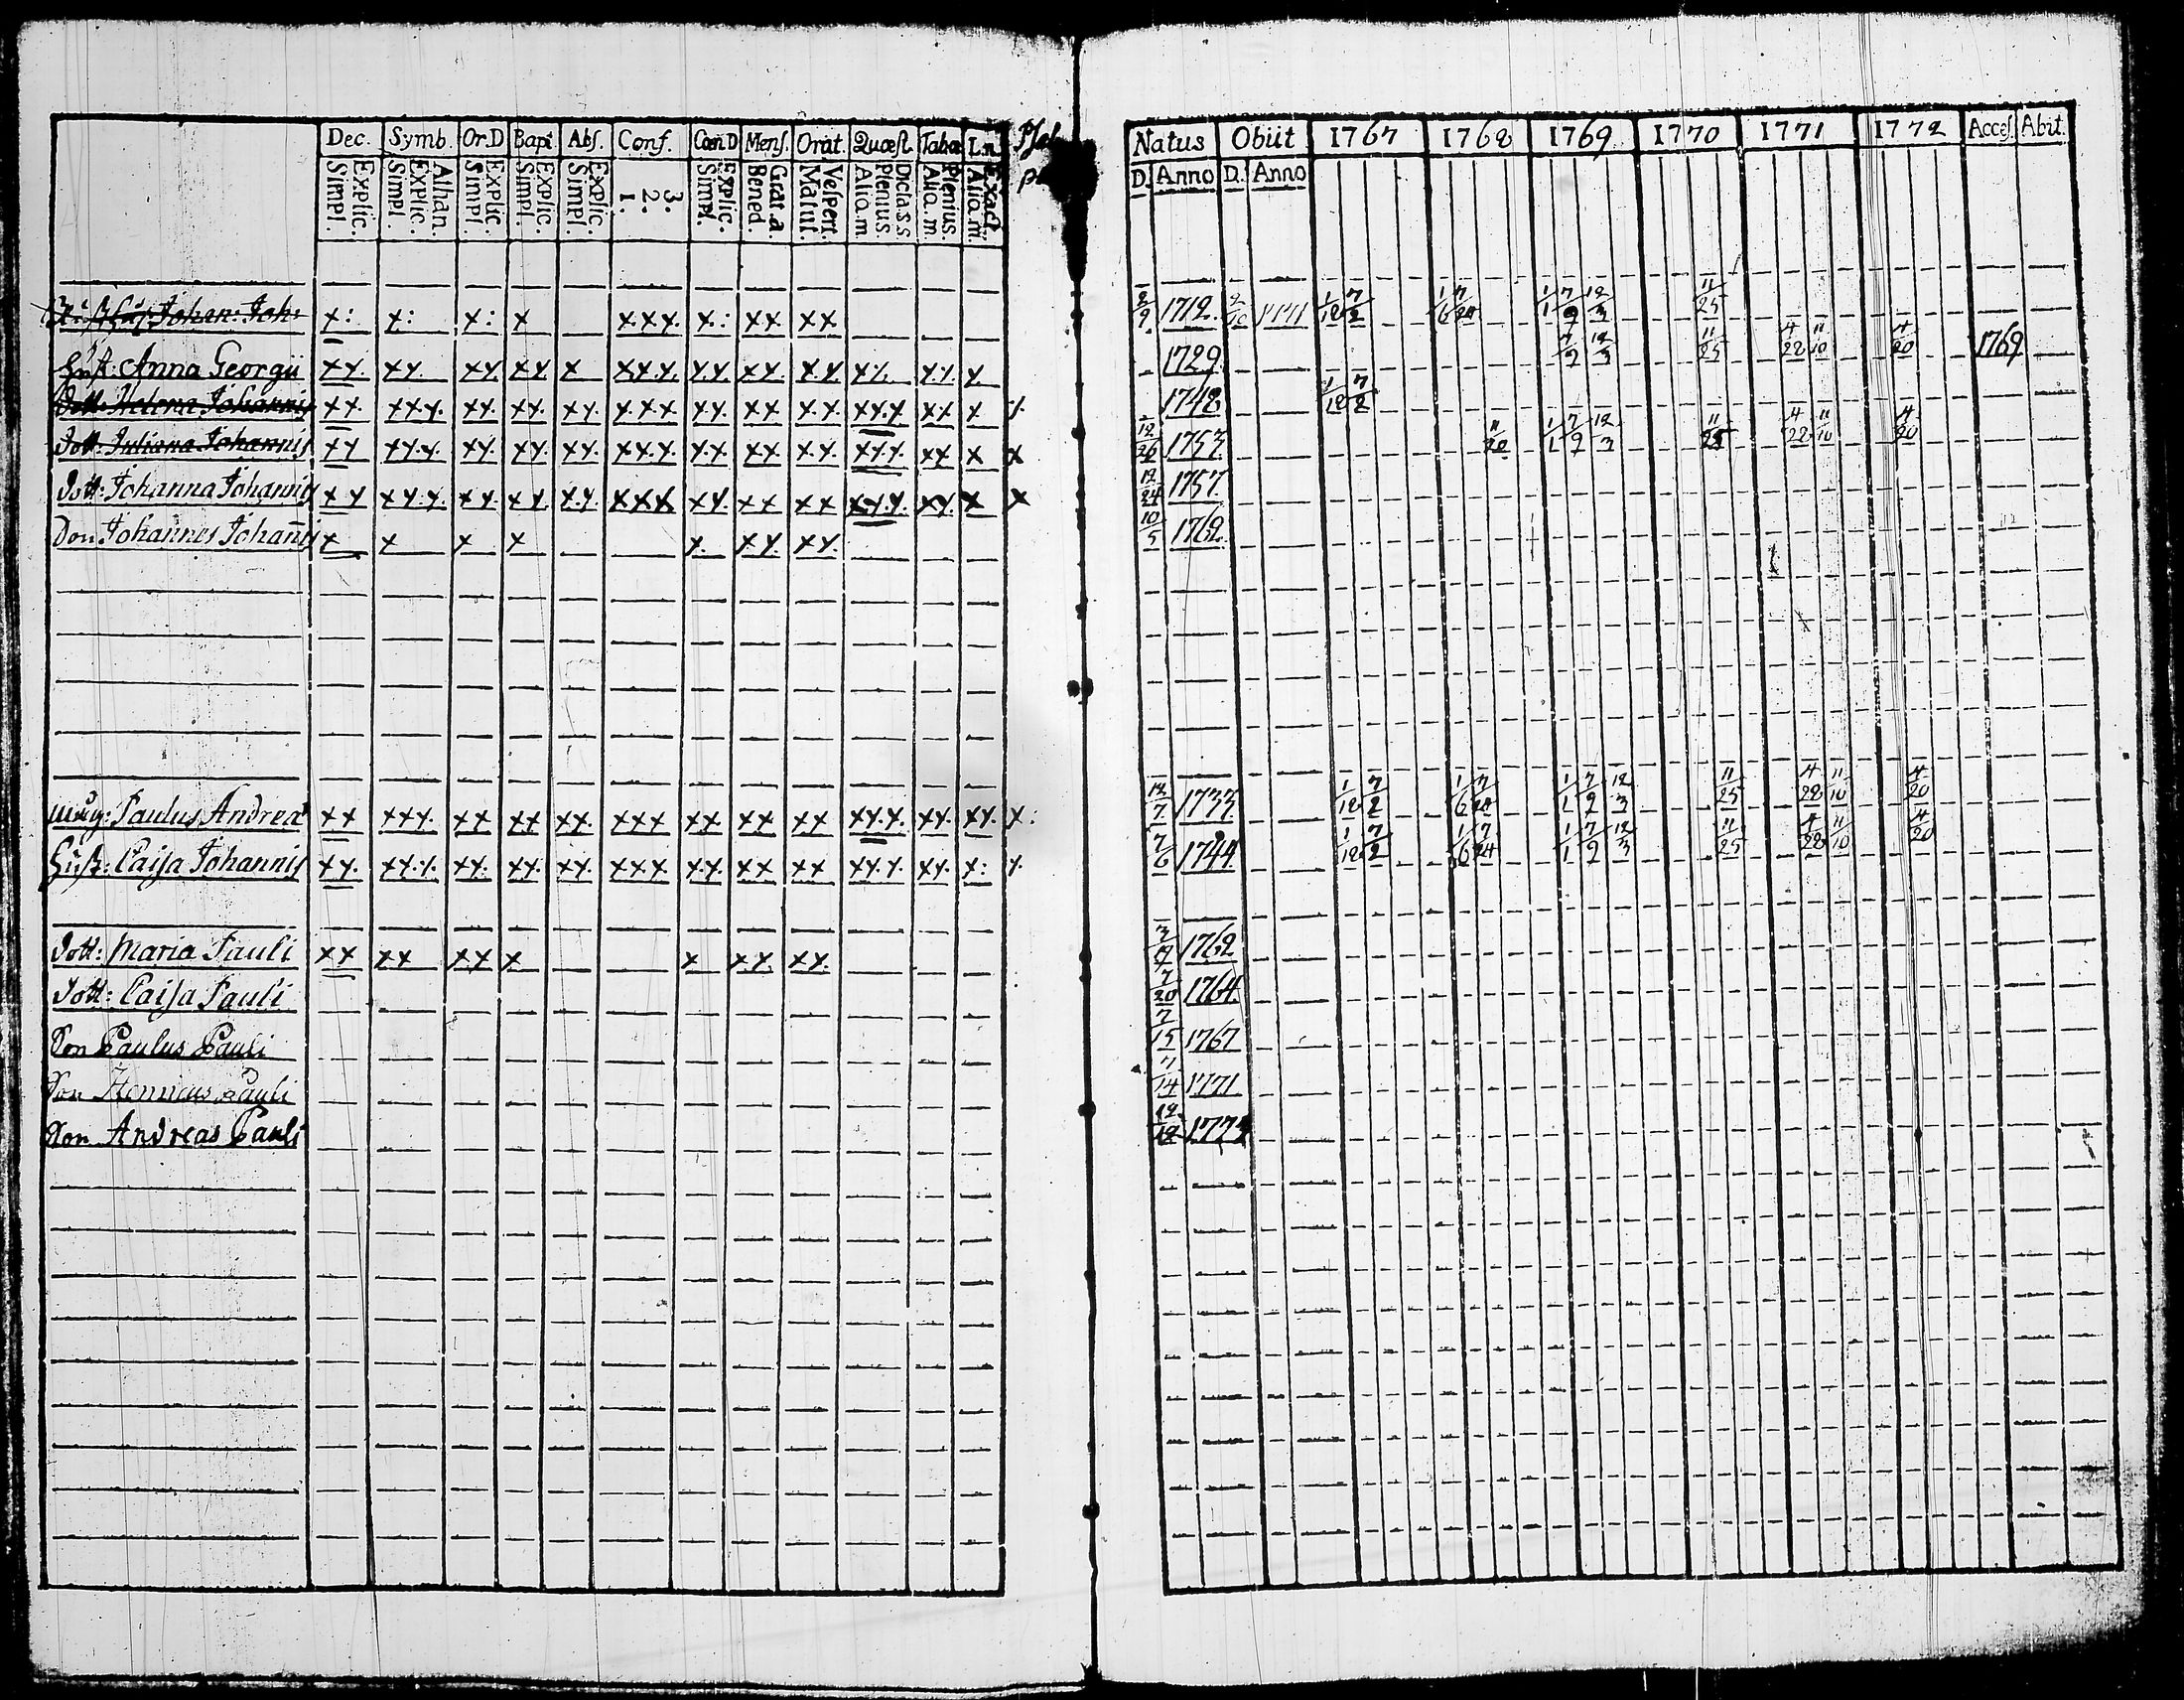 Dec. Symb. Or.D Bapt. Abs. Conf. Cœn.D Mens. Orat. Quæst. Tabæ L.n. Psal
Simpl. Explic. Simpl. Explic. Athan. Simpl. Explic. Simpl. Explic. Simpl. Explic. 1. 2. 3. Simpl. Explic. Bened. Grat. a. Matut. Vespert. Alio.m. Plenius. Dicta s.s. Alia.m. Plenius. Alia.m. Exact
Johan: Joh: x: x: x: x xxx. x: xx xx
Hust: Anna Georgii xx. xx. xx xx x xx.x x.x xx. xx xx. x.x. x
Dott: Helena Johannis xx. xxx. xx. xx. xx. xxx xx. xx x.x. xx.x xx x x.
Dott: Juliana Johannis xx xx.x. xx. xx. xx. xx.x. x.x xx xx. xx.x. xx x x
Dott: Johanna Johannis xx xx.x. xx. xx. x.x. xxx xx. xx xx xx.x. xx. x x
Son Johannes Johannis x x x x x. xx. xx.
Paulus Andreæ xx xxx. xx xx xx. xxx xx xx xx xx.x. xx. xx. x:
Hust: Caisa Johannis xx. xx.x. xx. xx. xx xxx. x.x. xx xx xx.x. xx. x: x.
Dott: Maria Pauli xx xx xx x x xx. xx.
Dott: Caisa Pauli
Son Paulus Pauli
Son Henricus Pauli
Son Andreas Pauli
Natus Obiit 1767 1768 1769 1770 1771 1772 Acces. Abit.
D. Anno D. Anno
2/9 1712. 2/10 1771 1/18 7/2 1/6 7/24 1/1 7/9 12/3 11/25
1729. 7/9 12/3 11/25 4/28 11/10 4/20 1769
1748 1/18 7/2
12/26 1753. 11/20 1/1 7/9 12/3 11/25 4/28 11/10 4/20
12/24 1757.
10/5 1762.
12/7. 1733. 1/18 7/2 1/6 7/24 1/1 7/9 12/3 11/25 4/28 11/10 4/20
7/6 1744 1/18 7/2 1/6 7/24 1/1 7/9 12/3 11/25 4/28 11/10 4/20
3/19 1762
7/20 1764.
7/15 1767
7/14 1771
12/18 1773